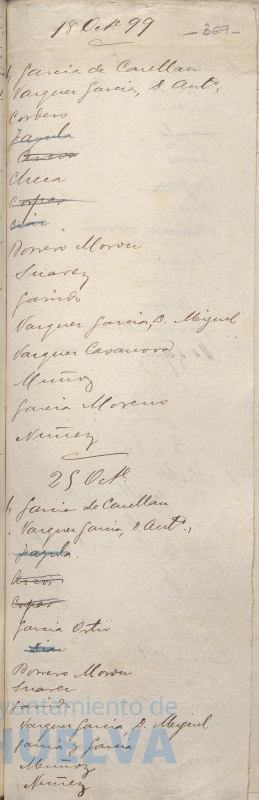 18 Octe 99
- 369 -
García de Casellan
Vazquez García, D. Anto,
Cordero
Jazula
Arcos
Checa
Crespo
Diaz
Borrero Moron
Suarez
Garrido
Vazquez García, D. Miguel
Vazquez Casanova
Muñoz
García Moreno
Nuñez
25 Octe
García de Casellan
Vazquez García, D Anto,
Jazula.
Arcos
García Ortiz
Diaz
Borrero Moron
Suarez
Garrido
Vazquez García D. Miguel
García y García
Muñoz
Nuñez
yuntamiento de
HUELVA